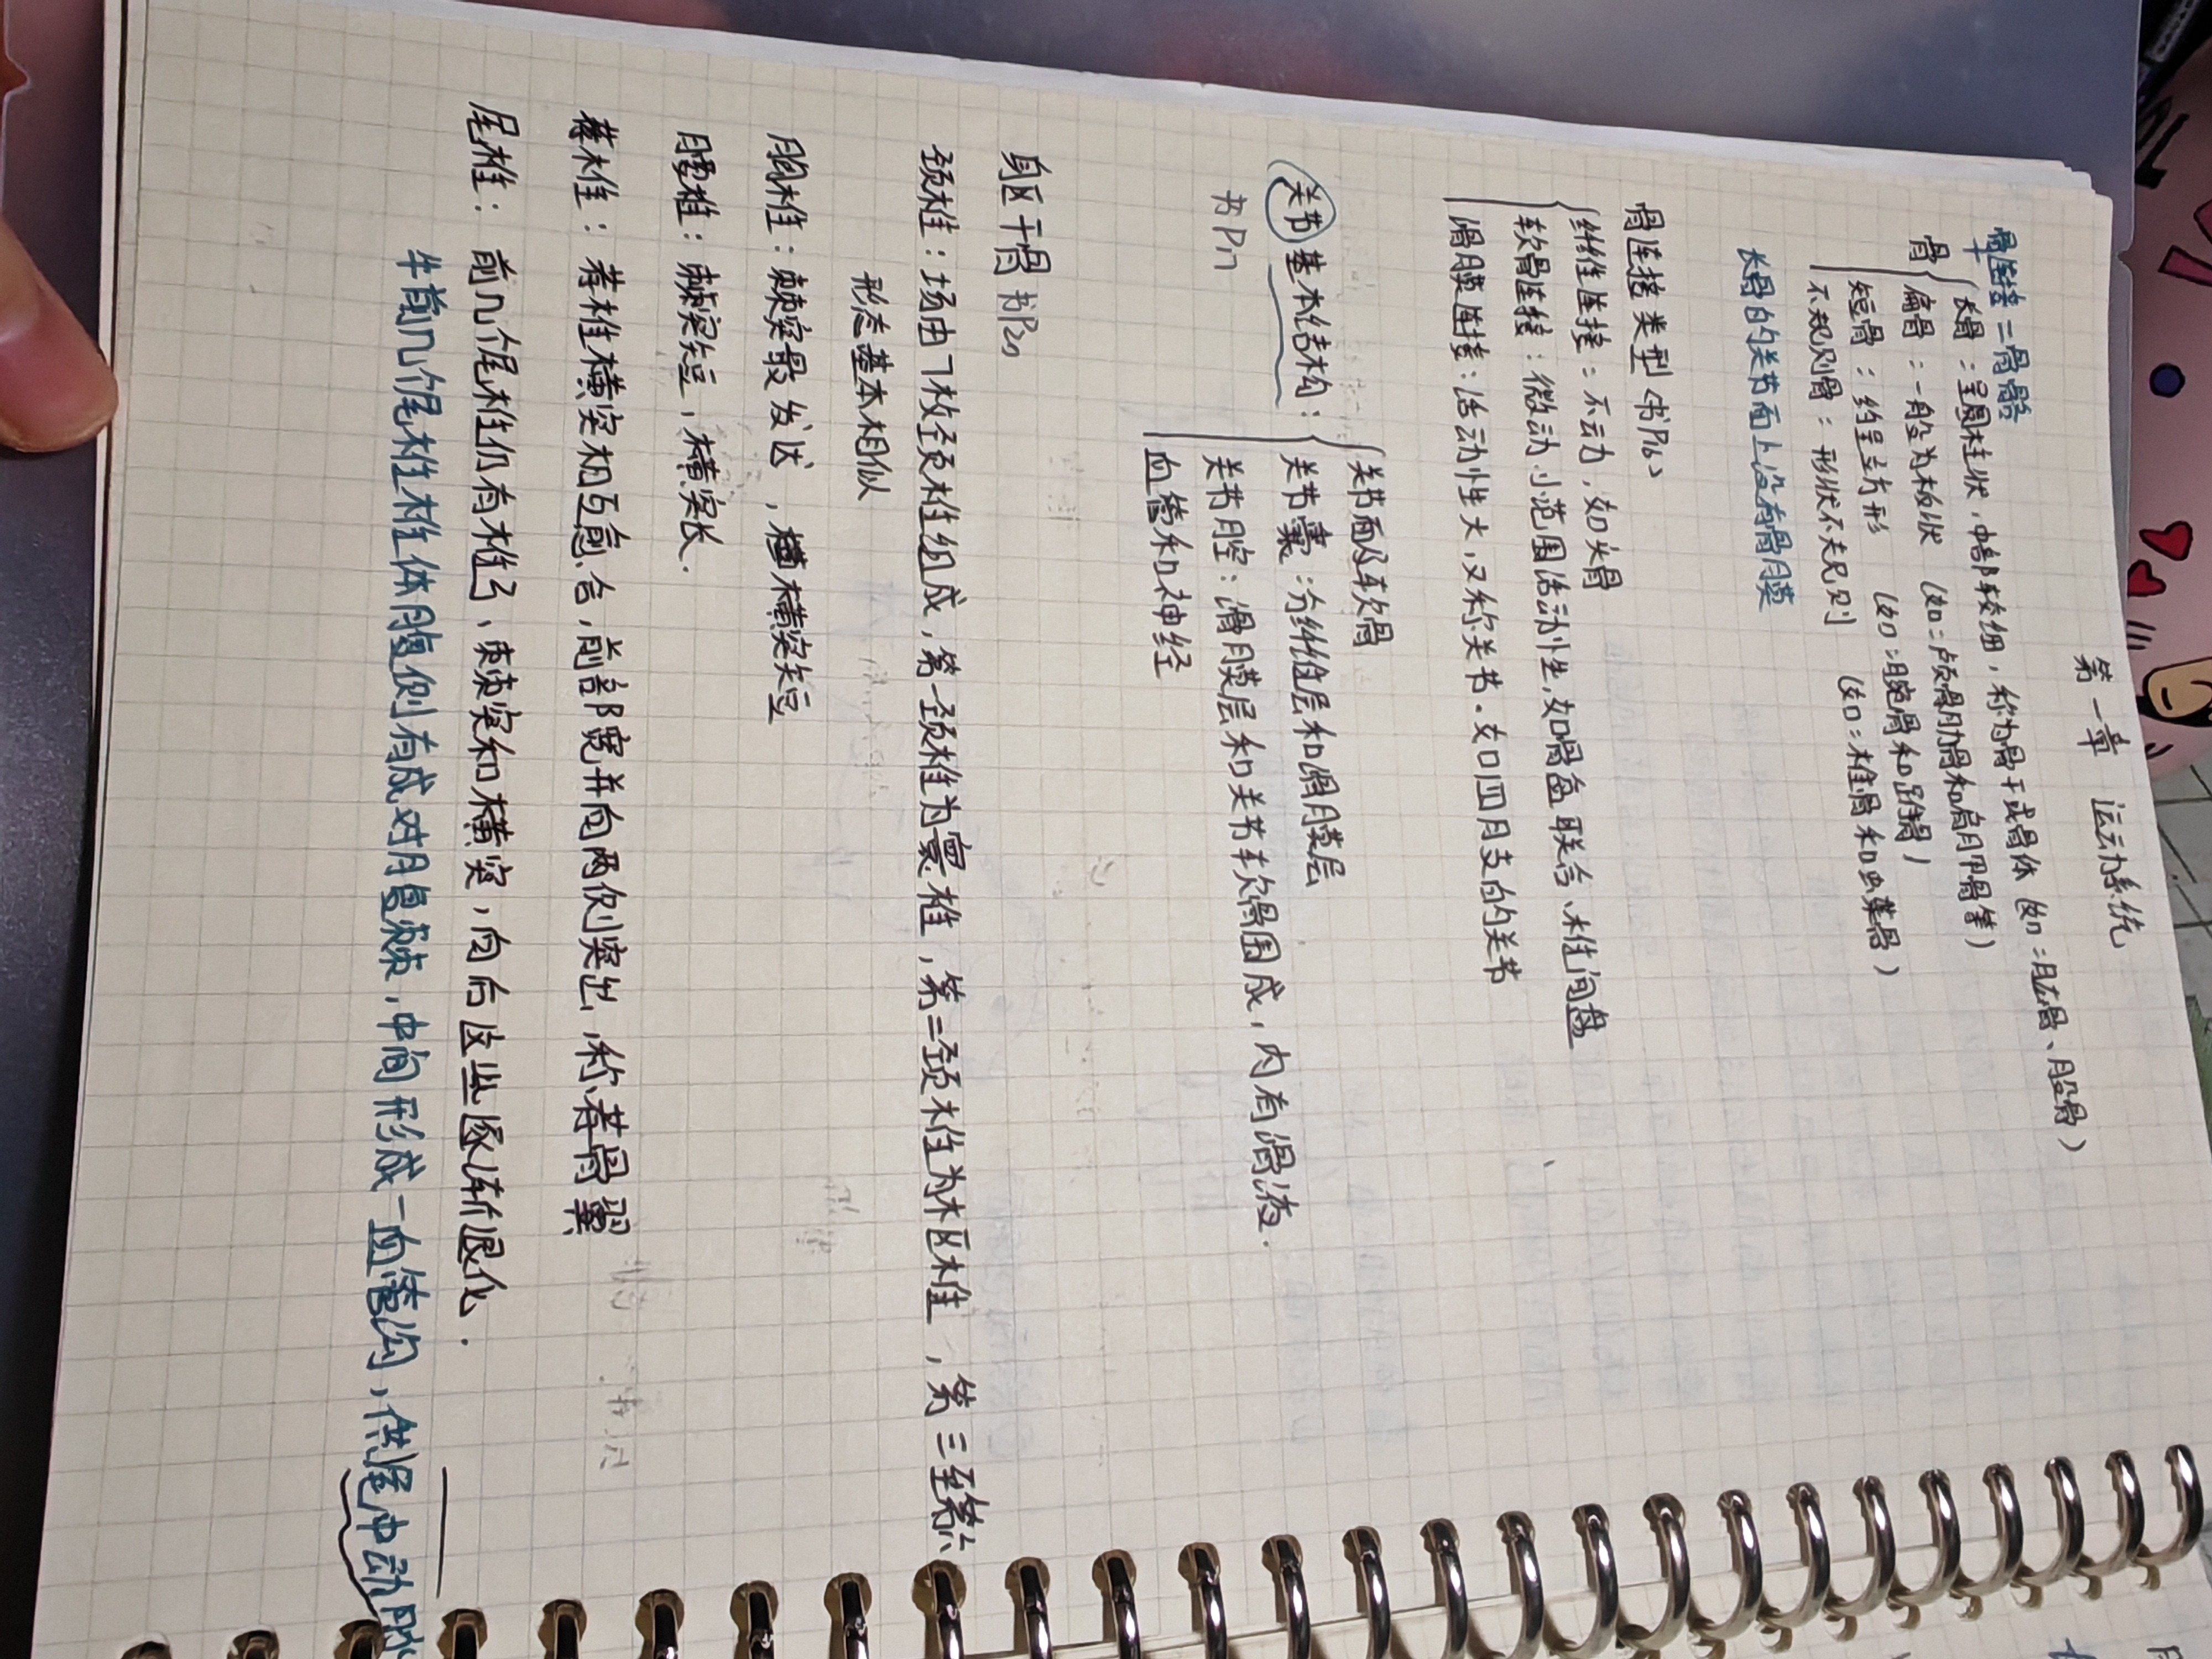 第一章 运动系统
骨连接 = 骨骼
骨
长骨：呈圆柱状，中部较细，称为骨干或骨体（如：肱骨、股骨）
扁骨：一般为板状（如：颅骨肋骨和肩胛骨等）
短骨：约呈立方形（如：腕骨和跗骨）
不规则骨：形状不规则（如：椎骨和
长骨的关节面上没有骨膜
骨连接类型（书P16）
纤维连接：不动，如头骨
软骨连接：微动，小范围活动性，如骨盆联合、椎间盘
滑膜连接：活动性大，又称关节．如四肢的关节
关节基本结构：
书P17
关节面及软骨
关节囊：分纤维层和滑膜层
关节腔：滑膜层和关节软骨围成，内有滑液．
血管和神经
躯干骨 书P20
颈椎：均由7枚颈椎组成，第一颈椎为寰椎，第二颈椎为枢椎，第三至第六
形态基本相似
胸椎：棘突最发达，横突短
腰椎：棘突短，横突长．
荐椎：荐椎横突相互愈合，前部宽并向两侧突出，称荐骨翼
尾椎：前几个尾椎仍有椎弓、棘突和横突，向后这些逐渐退化．
牛前几个尾椎椎体腹侧有成对腹棘，中间形成一血管沟，供尾中动脉